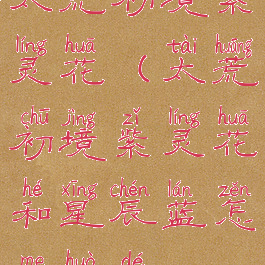 太荒初境紫
líng huā tài huāng
灵花(太荒
chū jìng zǐ líng huā
初境紫灵花
hé xīng chén lán zěn
和星辰蓝怎
me huò dé